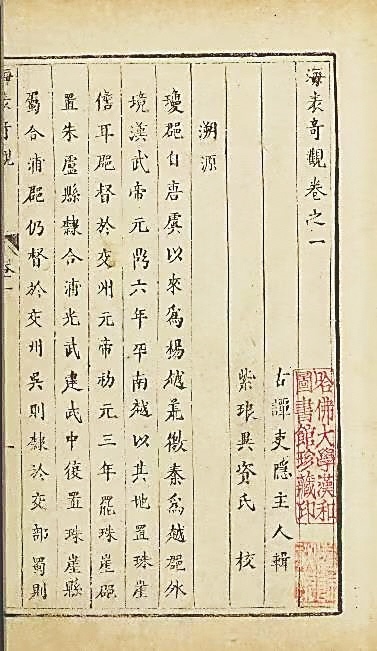 海表奇觀卷之一
哈佛大學漢和
圖書館珍藏印
古譚吏隱主人輯
紫琅異資氏 校
溯源
瓊郡自唐虞以來爲楊越荒徼秦爲越郡外
境漢武帝元鼎六年平南越以其地置珠崖
儋耳郡督於交州元帝初元三年罷珠崖郡
置朱盧縣隸合浦光武建武中復置珠崖縣
屬合浦郡仍督於交州吳則隸於交部蜀則
海表奇觀 卷一 一